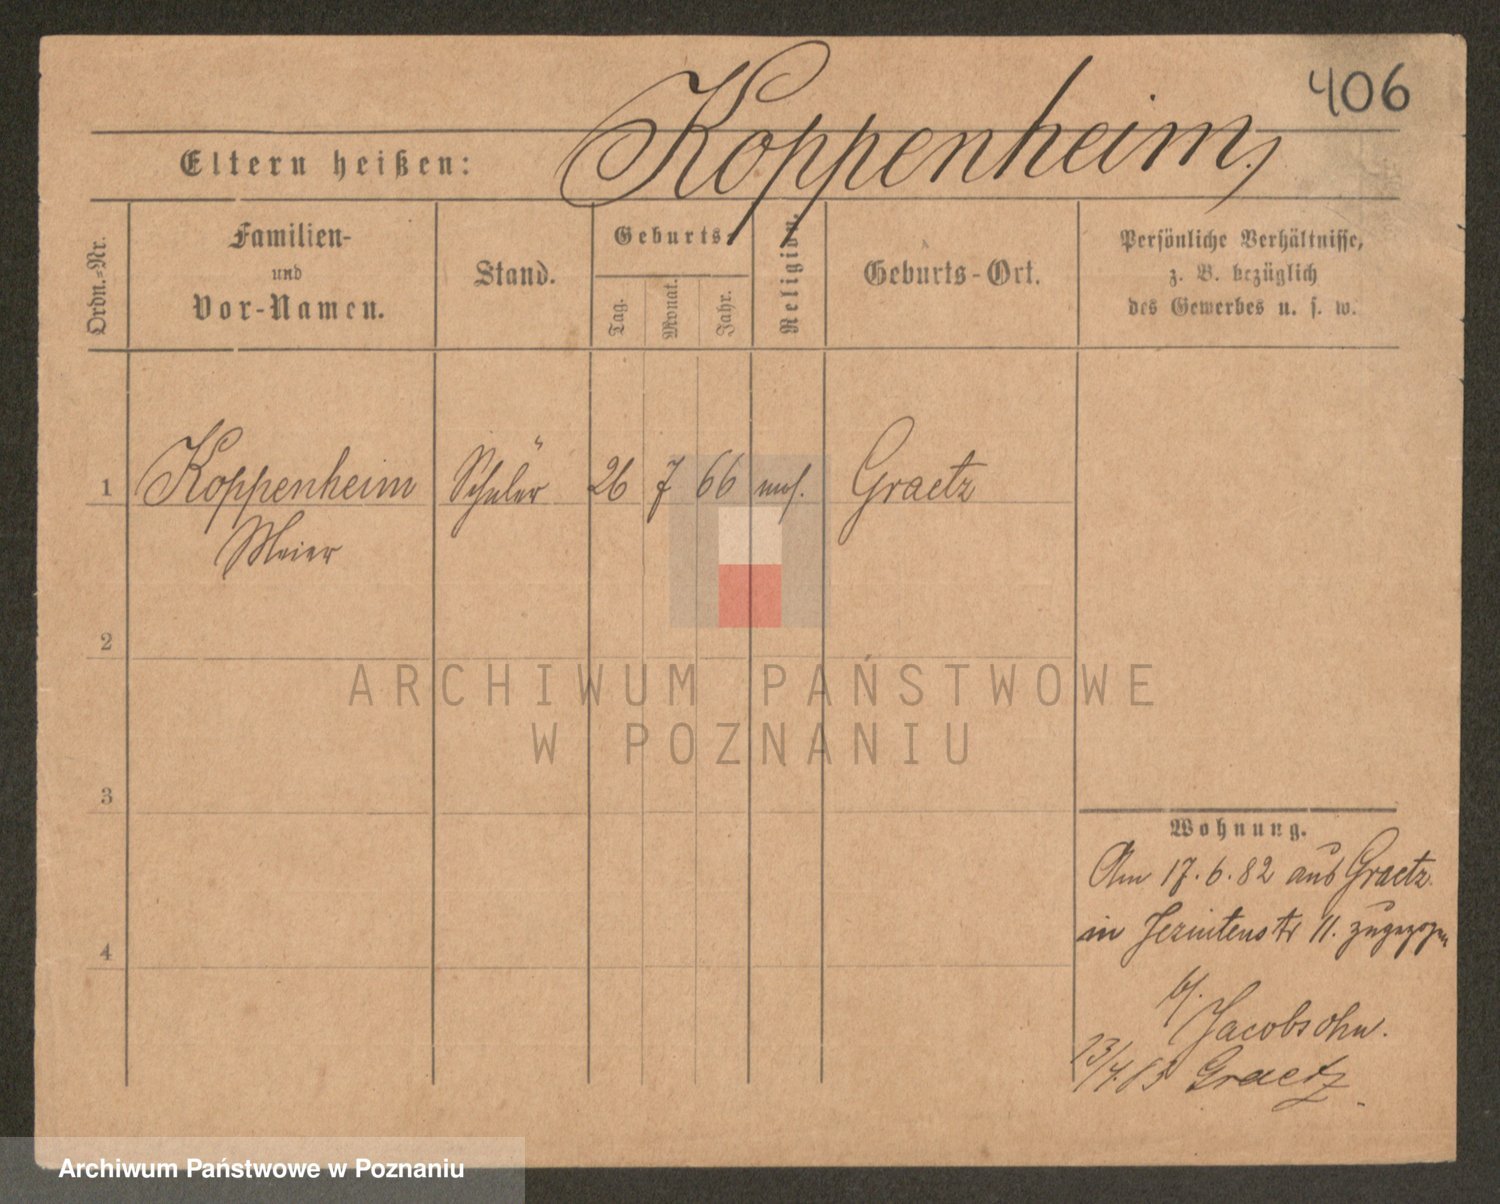 406
Koppenheim,
Eltern heißen:
Ordn.-Nr.
Familien-
und
Vor-Namen.
Stand.
Geburts-
Tag.
Monat.
Jahr.
Religion.
Geburts-Ort.
Persönliche Verhältnisse,
z. B. bezüglich
des Gewerbes u. s. w.
1 Koppenheim Schüler 26 7 66 mos. Graetz
Meier
2
3
4
Wohnung.
Am 17.6.82 aus Graetz
in Jesuitenstr 11. zugezogen
b/. Jacobsohn.
23/4.83 Graetz
ARCHIWUM PAŃSTWOWE
W POZNANIU
Archiwum Państwowe w Poznaniu